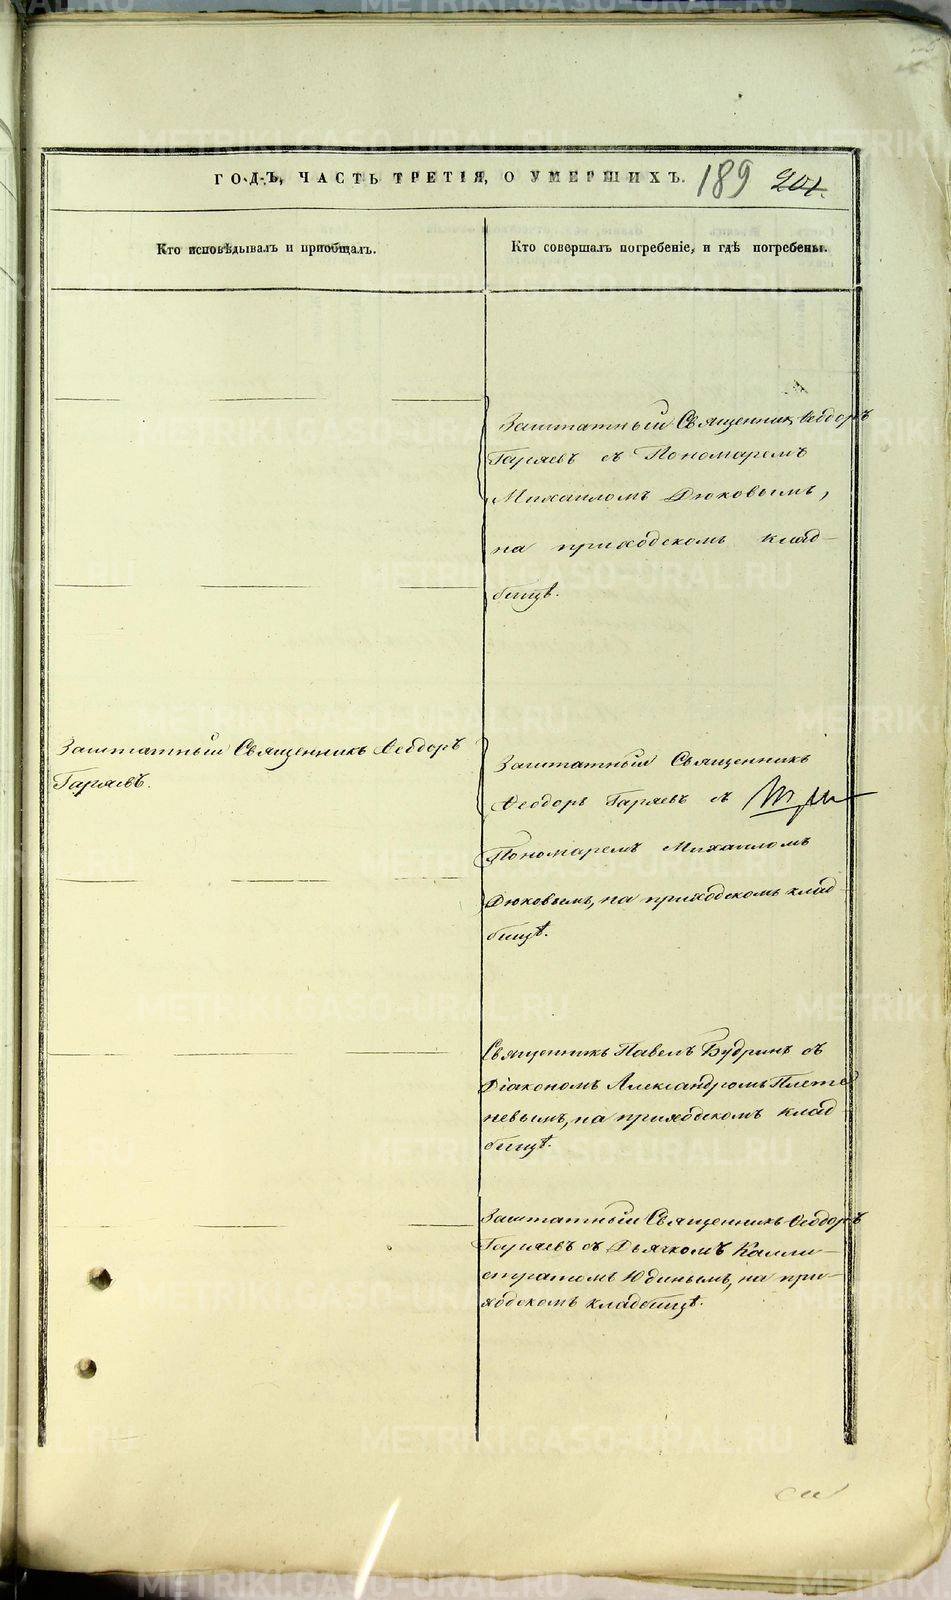 ГОДЪ, ЧАСТЬ ТРЕТІЯ, О УМЕРШИХЪ. 189 201.
Кто исповѣдывалъ и пріобщалъ.
Кто совершалъ погребеніе, и гдѣ погребены.
Заштатный Священникъ Ѳеодоръ
Гаряевъ съ Пономаремъ
Михаиломъ Дюковымъ,
на приходскомъ клад-
бищѣ.
Заштатный Священникъ Ѳеодоръ
Гаряевъ.
Заштатный Священникъ
Ѳеодоръ Гаряевъ съ
Пономаремъ Михаиломъ
Дюковымъ, на приходскомъ клад-
бищѣ.
Священникъ Павелъ Будринъ съ
Діакономъ Александромъ Плете
невымъ, на приходскомъ клад-
бищѣ.
Заштатный Священникъ Ѳеодоръ
Гаряевъ съ Дьячкомъ Калли-
стратомъ Юдинымъ, на при-
ходскомъ кладбищѣ.
METRIKI.GASO-URAL.RU